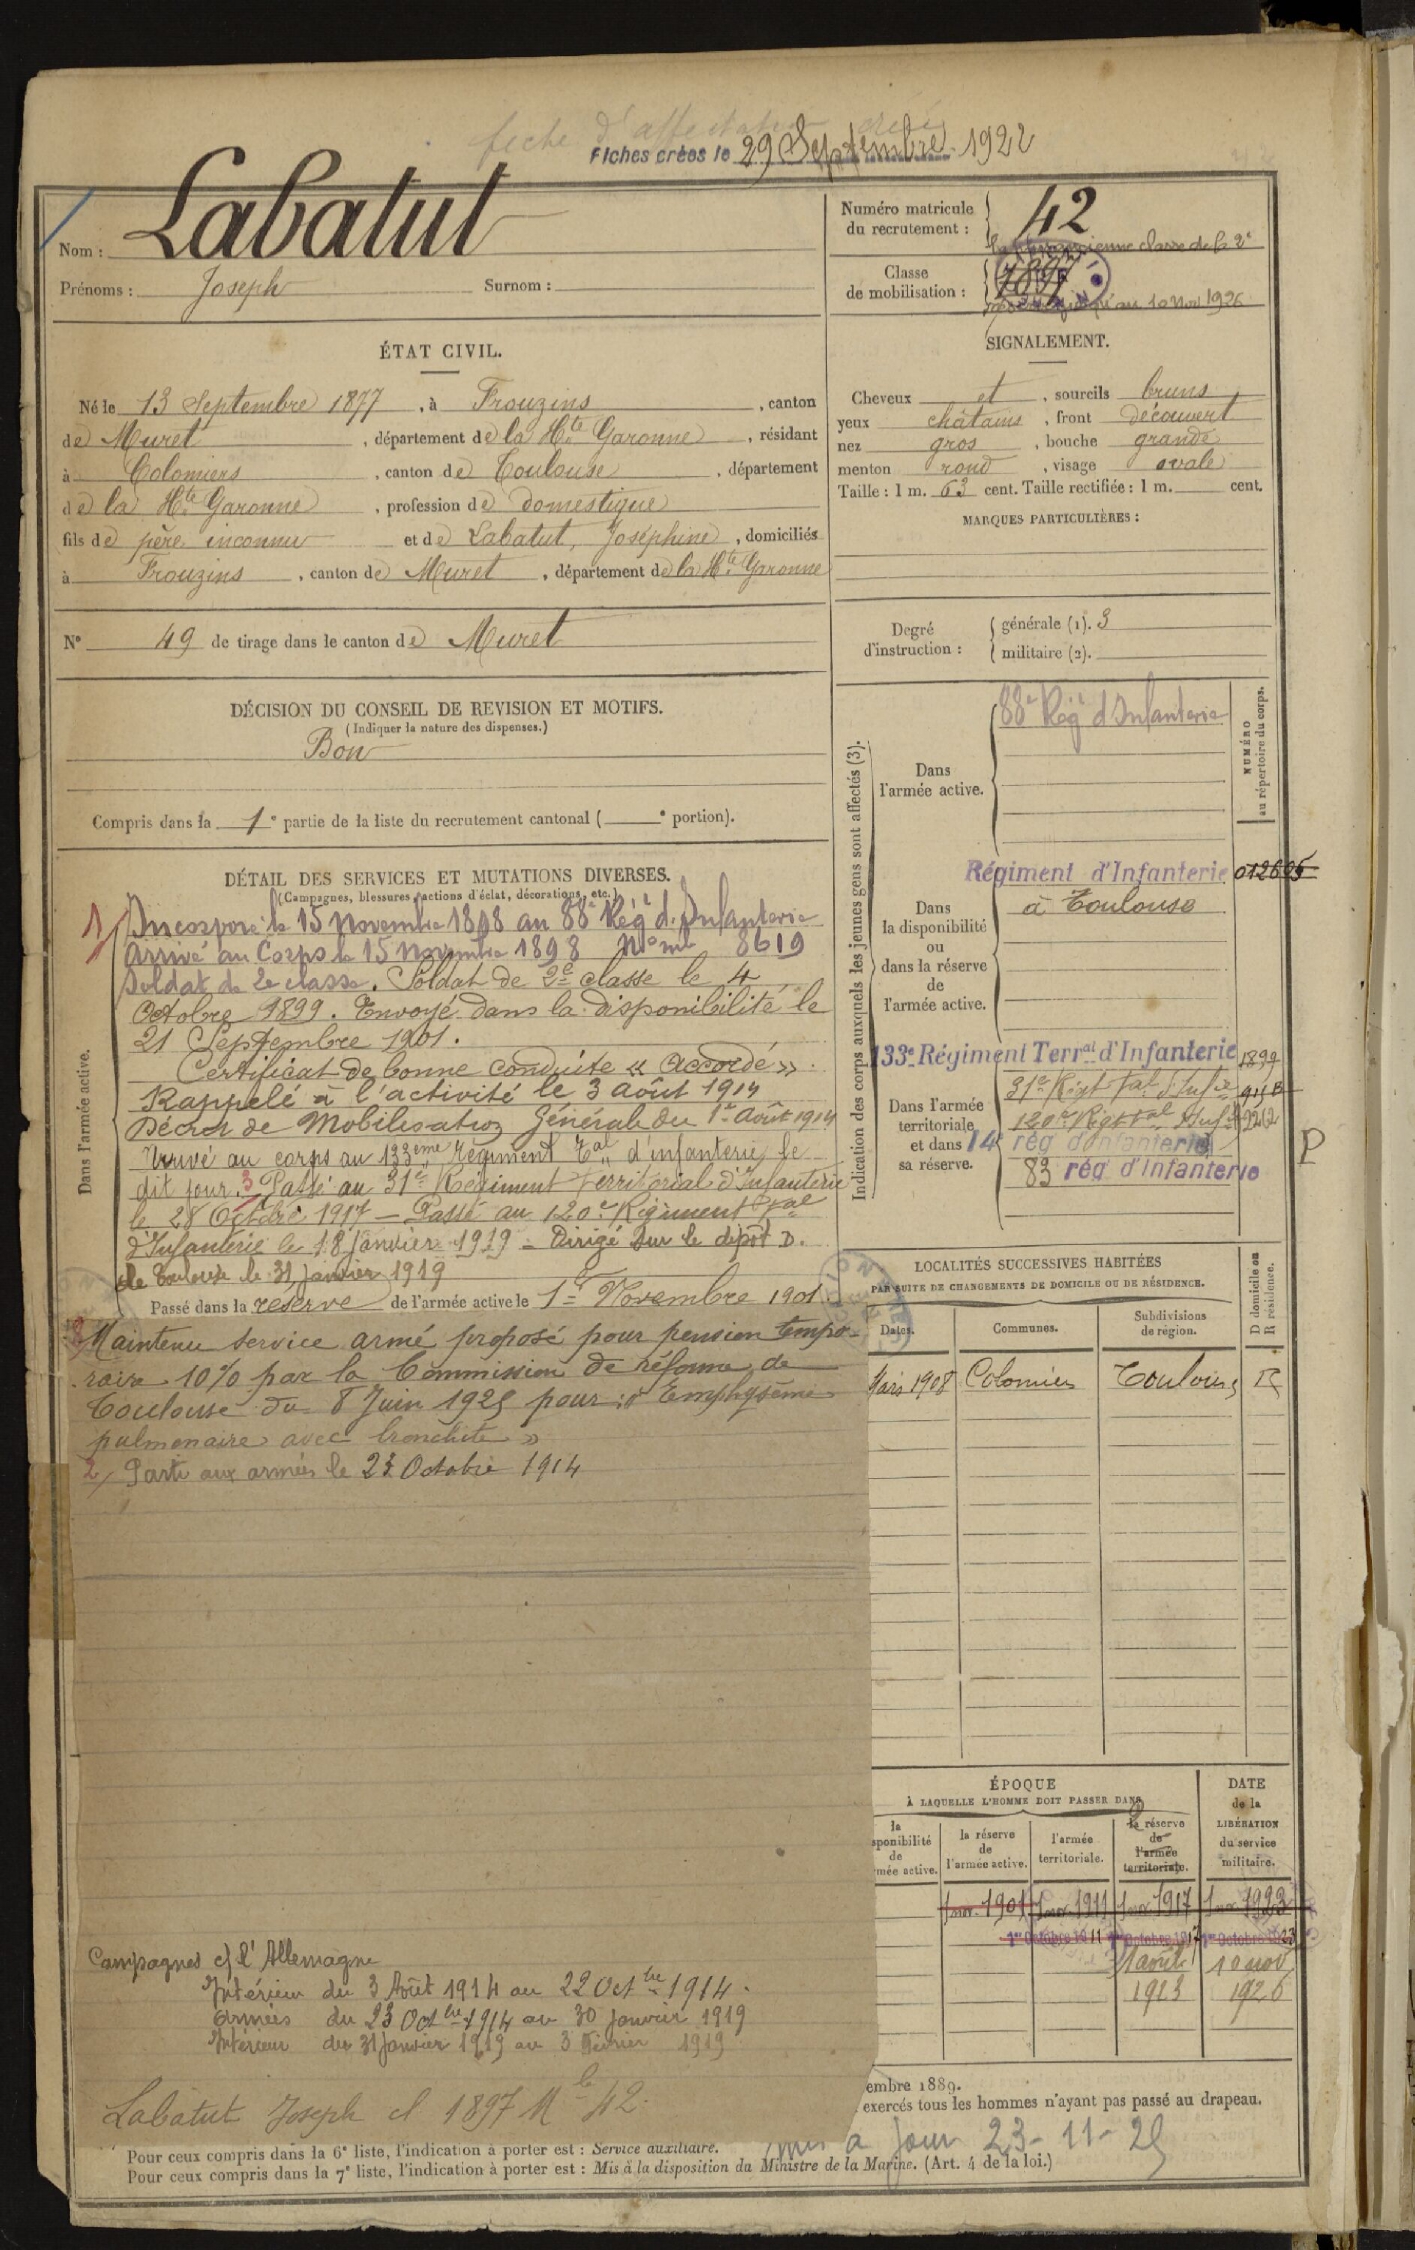 fiche d'affectation créée
Fiches crées le 29 Septembre 1922
Nom : Labatut
Prénoms : Joseph Surnom :
Numéro matricule du recrutement : 42
Classe de mobilisation : 1897
ancienne classe de la 2e
jusqu'au 10 Nov 1926
ÉTAT CIVIL.
Né le 13 Septembre 1877, à Frouzins, canton
de Muret, département de la Hte Garonne, résidant
à Colomiers, canton de Toulouse, département
de la Hte Garonne, profession de domestique
fils de père inconnu et de Labatut, Joséphine, domiciliés
à Frouzins, canton de Muret, département de la Hte Garonne
N° 49 de tirage dans le canton de Muret
SIGNALEMENT.
Cheveux et, sourcils bruns
yeux châtains, front découvert
nez gros, bouche grande
menton rond, visage ovale
Taille : 1 m. 63 cent. Taille rectifiée : 1 m. cent.
MARQUES PARTICULIÈRES :
Degré d'instruction : générale (1). 3
militaire (2).
DÉCISION DU CONSEIL DE REVISION ET MOTIFS.
(Indiquer la nature des dispenses.)
Bon
Compris dans la 1e partie de la liste du recrutement cantonal ( e portion).
DÉTAIL DES SERVICES ET MUTATIONS DIVERSES.
(Campagnes, blessures, actions d'éclat, décorations, etc.)
Dans l'armée active.
1/ Incorporé le 15 Novembre 1898 au 88e Régt d'Infanterie
Arrivé au Corps le 15 novembre 1898 No ml 8619
Soldat de 2e classe. Soldat de 2e classe le 4
Octobre 1899. Envoyé dans la disponibilité le
21 Septembre 1901.
Certificat de bonne conduite « Accordé ».
Rappelé à l'activité le 3 Août 1914
Décret de Mobilisation Générale du 1er Août 1914
Arrivé au corps au 133ème Régiment Tal d'infanterie le
dit jour. 3 Passé au 31e Régiment Territorial d'Infanterie
le 28 Octobre 1917 — Passé au 120e Régiment Tal
d'Infanterie le 18 Janvier 1919 — Dirigé sur le dépôt D.
de Toulouse le 31 Janvier 1919
Passé dans la réserve de l'armée active le 1er Novembre 1901
Maintenu service armé proposé pour pension tempo-
raire 10% par la Commission de réforme de
Toulouse du 8 Juin 1925 pour : « Emphysème
pulmonaire avec bronchite »
2/ Parti aux armées le 23 Octobre 1914
Campagnes c/ l'Allemagne
Intérieur du 3 Août 1914 au 22 Octbre 1914.
Armées du 23 Octbre 1914 au 30 Janvier 1919
Intérieur du 31 Janvier 1919 au 3 Février 1919
Labatut Joseph cl 1897 Mle 42.
Indication des corps auxquels les jeunes gens sont affectés (3).
NUMÉRO au répertoire du corps.
Dans l'armée active.
88e Régt d'Infanterie
Dans la disponibilité ou dans la réserve de l'armée active.
Régiment d'Infanterie 012605
à Toulouse
Dans l'armée territoriale et dans sa réserve.
133e Régiment Terral d'Infanterie 1899
31e Régt Tal d'Infie
120e Régt Tal d'Infie
14 rég d'infanterie
83 rég d'infanterie
P
LOCALITÉS SUCCESSIVES HABITÉES
PAR SUITE DE CHANGEMENTS DE DOMICILE OU DE RÉSIDENCE.
D domicile ou R résidence.
Dates. Communes. Subdivisions de région.
Mars 1908 Colomiers Toulouse R
ÉPOQUE
À LAQUELLE L'HOMME DOIT PASSER DANS
DATE de la LIBÉRATION du service militaire.
la
sponibilité
de
mée active.
la réserve de l'armée active.
l'armée territoriale.
la réserve de l'armée territoriale.
1 nov. 1901 1 nov. 1911 1 nov. 1917 1 nov. 1923
1er Octobre 1911 1er Octobre 1917 1er Octobre 1923
1 août 1913 10 nov 1926
embre 1889.
exercés tous les hommes n'ayant pas passé au drapeau.
Pour ceux compris dans la 6e liste, l'indication à porter est : Service auxiliaire.
mis à jour 23-11-25
Pour ceux compris dans la 7e liste, l'indication à porter est : Mis à la disposition du Ministre de la Marine. (Art. 4 de la loi.)